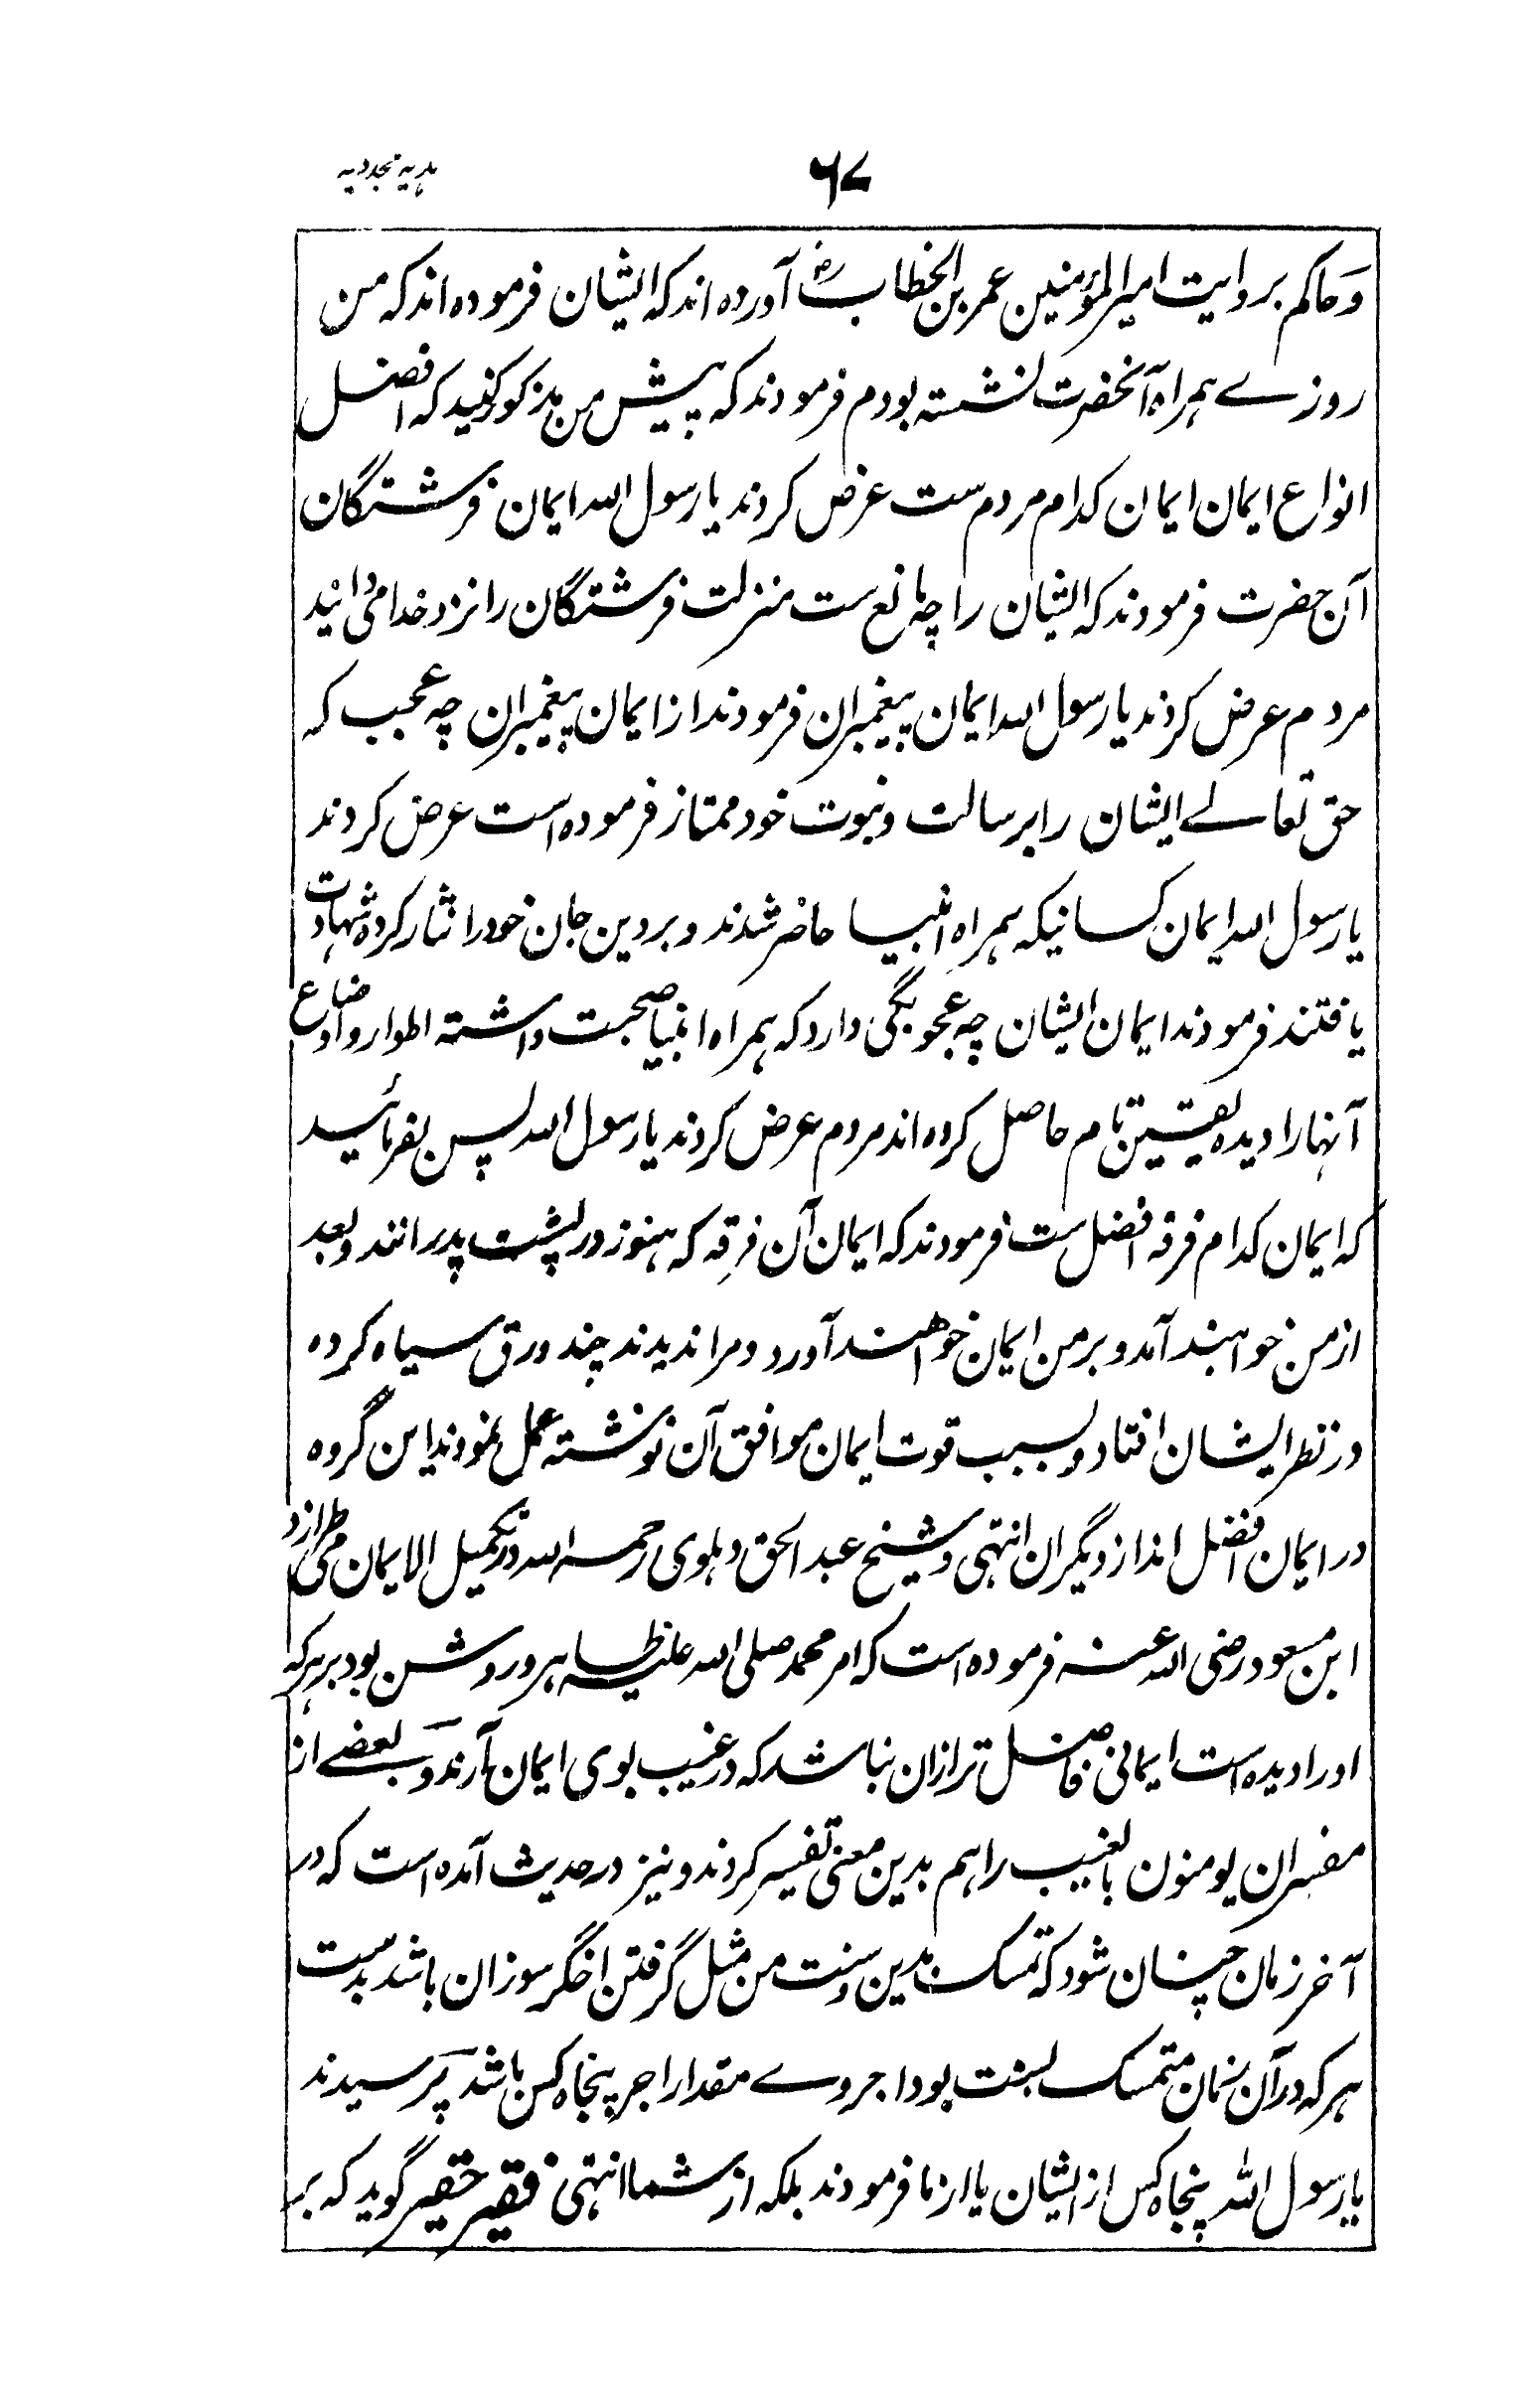 ۶۷
ہدیہ مجددیہ
وحاکم بروایت امیرالمؤمنین عمر بن الخطاب رض آورده اند که ایشان فرموده اند که من
روزے ہمراه آنحضرت نشسته بودم فرمودند که پیش من مذکور کنید که افضل
انواع ایمان ایمان کدام مردم ست عرض کردند یا رسول الله ایمان فرشتگان
آن حضرت فرمودند که ایشان را چه مانع ست منزلت فرشتگان را نزد خدا می دانید
مردم عرض کردند یا رسول الله ایمان پیغمبران فرمودند از ایمان پیغمبران چه عجب که
حق تعالے ایشان را برسالت ونبوت خود ممتاز فرموده است عرض کردند
یا رسول الله ایمان کسانیکه ہمراه انبیا حاضر شدند و بر دین جان خود را نثار کرده شہادت
یافتند فرمودند ایمان ایشان چه عجوبگی دارد که ہمراه انبیا صحبت داشته اطوار و اوضاع
آنہا را دیده یقین تام حاصل کرده اند مردم عرض کردند یا رسول الله پس بفرمائید
که ایمان کدام فرقه افضل ست فرمودند که ایمان آن فرقه که ہنوز در پشت پدرانند و بعد
از من خواہند آمد و بر من ایمان خواهند آورد و مرا ندیدند چند ورق سیاه کرده
در نظر ایشان افتاد و بسبب قوت ایمان موافق آن نوشته عمل نمودند این گروه
در ایمان افضل اند از دیگران انتہی وشیخ عبد الحق دہلوی رحمه الله در تکمیل الایمان می طرازد
ابن مسعود رضی الله عنه فرموده است که امر محمد صلی الله علیه ظاہر و روشن بود بر ہر که
اورا دیده است ایمانی فاضل تر ازان نباشد که در غیب بوی ایمان آرند و بعضے از
مفسران یومنون بالغیب را ہم بدین معنی تفسیر کردند و نیز در حدیث آمده است که در
آخر زمان چنان شود که تمسک بدین وسنت من مثل گرفتن اخگر سوزان باشد بدست
ہر که در آن زمان متمسک بسنت بود اجر وے مقدار اجر پنجاه کس باشد پرسیدند
یا رسول الله پنجاه کس از ایشان یا از ما فرمودند بلکه از شما انتہی فقیر حقیر گوید که بر